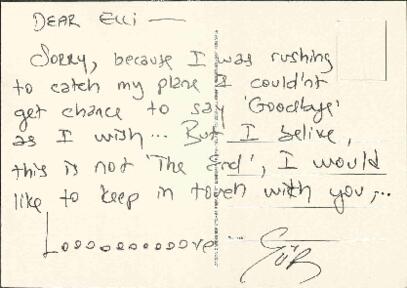 DEAR Elli —
Sorry, because I was rushing
to catch my plane I could'nt
get chance to say 'Goodbye'
as I wish... But I belive,
this is not 'The End', I would
like to keep in touch with you,..
Looooooooooove...